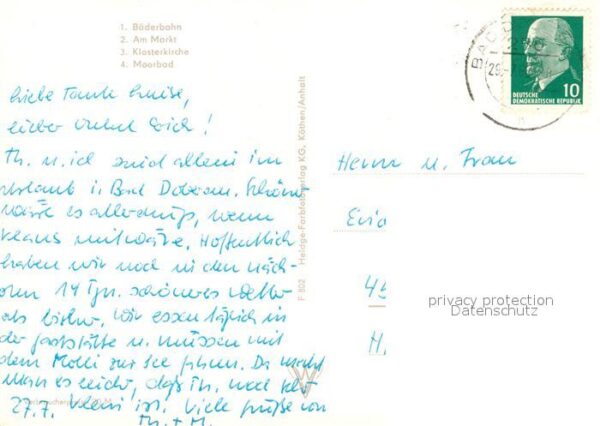 1. Bäderbahn
2. Am Markt
3. Klosterkirche
4. Moorbad
Liebe Tante Luise,
lieber Onkel Erich!
Th. u. ich sind allein im
Urlaub i. Bad Doberan. Schön
wäre es allerdings, wenn
Klaus mit wäre. Hoffentlich
haben wir noch in den näch-
sten 14 Tgn. schöneres Wetter
als bisher. Wir essen täglich in
der Gaststätte u. müssen mit
dem Molli zur See fahren. Da merkt
man es leicht, daß Th. noch
27.7. klein ist. Viele Grüße von
Th. + M.
F 802 Heldge-Farbfotoverlag KG, Köthen/Anhalt
BAD
DEUTSCHE
DEMOKRATISCHE REPUBLIK
10
Herrn u. Frau
45
H.
privacy protection
Datenschutz